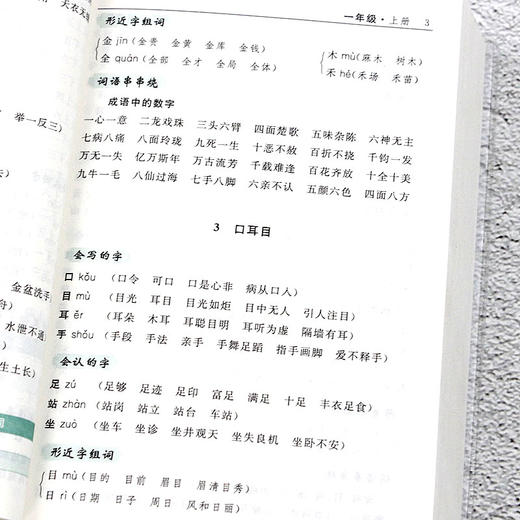 天衣无
举一反三）
去）
金盆洗手
舟）
水泄不通
生土长）
词
一年级·上册 3
形近字组词
金 jīn（金贵 金黄 金库 金钱）
全 quán（全部 全才 全局 全体）
木 mù（麻木 树木）
禾 hé（禾场 禾苗）
词语串串烧
成语中的数字
一心一意 二龙戏珠 三头六臂 四面楚歌 五味杂陈 六神无主
七病八痛 八面玲珑 九死一生 十恶不赦 百折不挠 千钧一发
万无一失 亿万斯年 万古流芳 千载难逢 百花齐放 十全十美
九牛一毛 八仙过海 七手八脚 六亲不认 五颜六色 四面八方
3 口耳目
会写的字
口 kǒu（口令 可口 口是心非 病从口入）
目 mù（目光 耳目 目光如炬 目中无人 引人注目）
耳 ěr（耳朵 木耳 耳聪目明 耳听为虚 隔墙有耳）
手 shǒu（手段 手法 亲手 手舞足蹈 指手画脚 爱不释手）
会认的字
足 zú（足够 足迹 足印 富足 满足 十足 丰衣足食）
站 zhàn（站岗 站立 站台 车站）
坐 zuò（坐车 坐诊 坐井观天 坐失良机 坐卧不安）
形近字组词
目 mù（目的 目前 眉目 眉清目秀）
日 rì（日期 日子 周日 风和日丽）